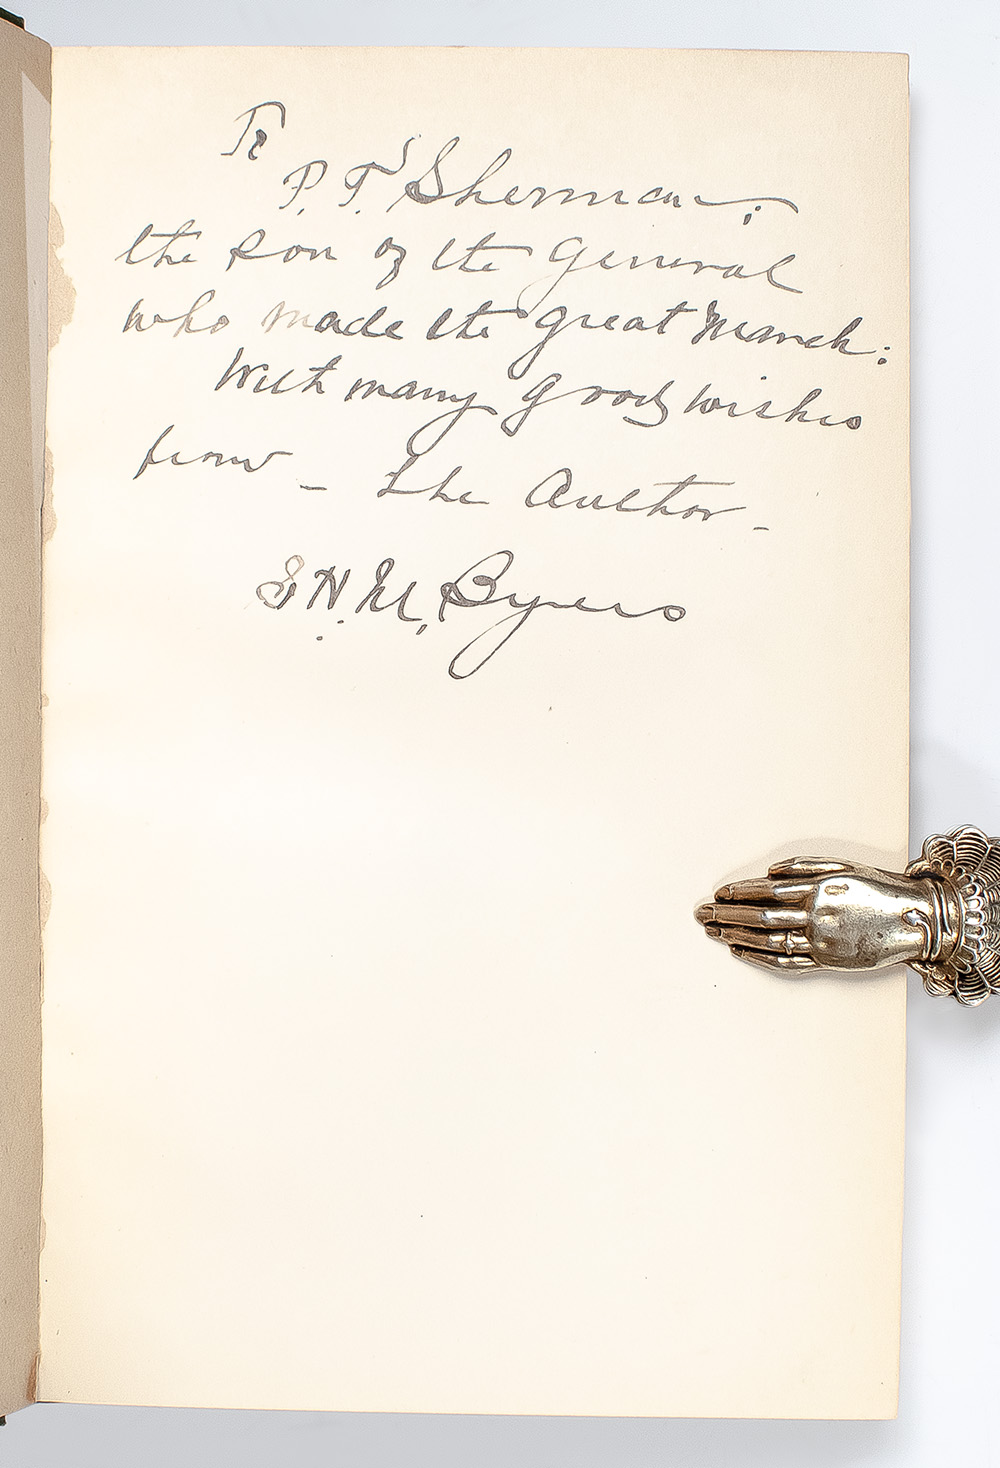 To
P. T. Sherman:
the son of the General
who made the great March:
With many good wishes
from – The Author –
S. H. M. Byers